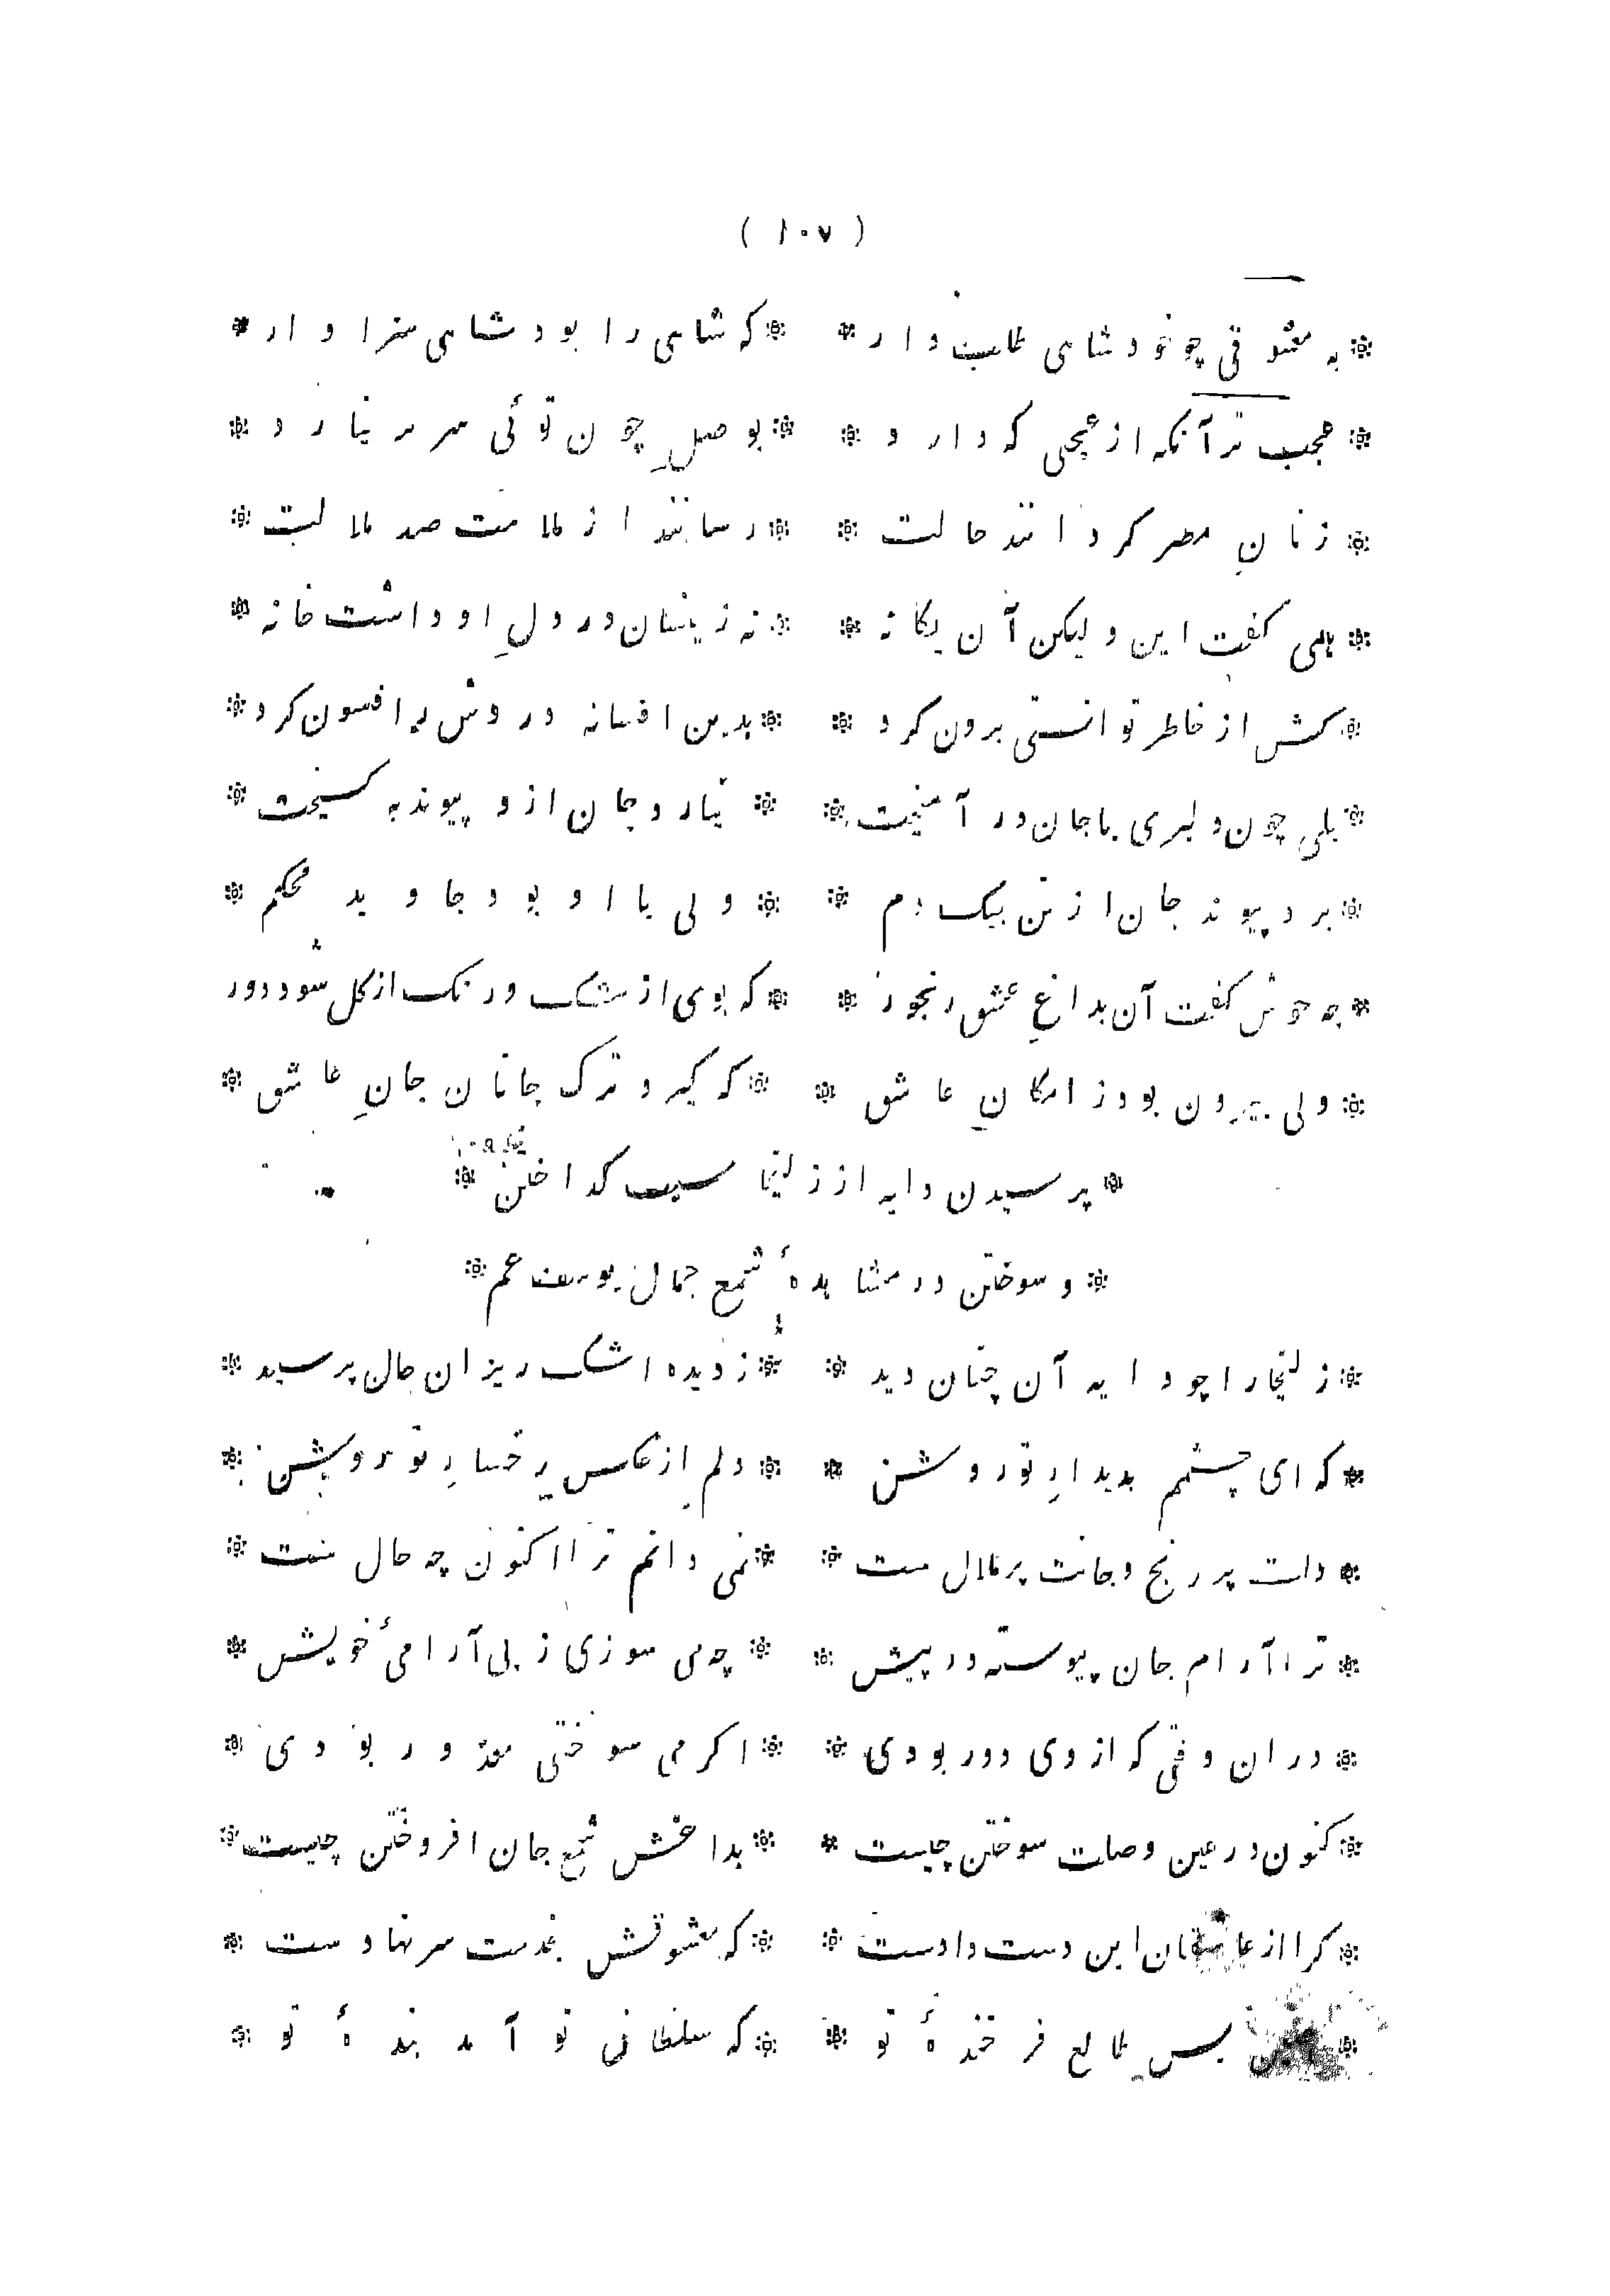 ( ١٠٧ )
* به معشوقی چو خود شاهی طلب دار * * که شاهی را بود شاهی سزاوار *
* عجب تر آنکه از عجبی که دارد * * بوصلِ چون توئی سر بر نیارد *
* زنانِ مصر کر دانند حالت * * رسانند از ملامت صد ملالت *
* همی کفت این و لیکن آن یکانه * * نه زینسان در دلِ او داشت خانه *
* کش از خاطر توانستی برون کرد * * بدین افسانه دردش را فسون کرد *
* بلی چون دلبری با جان در آمیخت * * نیارد جان ازو پیوند بکسیخت *
* برد پیوند جان از تن بیک دم * * ولی با او بود جاوید محکم *
* چه خوش کفت آن بداغِ عشق رنجور * * که بوی از مشک و رنک از کل شود دور
* ولی بیرون بود ز امکانِ عاشق * * که کیرد ترک جانان جانِ عاشق *
* پرسیدن دایه از زلیخا سبب کداختن *
* و سوختن در مشاهدهٔ شمع جمال یوسف عم *
* زلیخا را چو دایه آن چنان دید * * ز دیده اشک ریزان حال پرسید *
* که ای چشمم بدیدارِ تو روشن * * دلم از عکس رخسارِ تو روشن *
* دلت پر رنج و جانت پر ملال ست * * نمی دانم ترا اکنون چه حال ست *
* ترا آرام جان پیوسته در پیش * * چه می سوزی ز بی آرامیٔ خویش *
* در ان وقتی که از وی دور بودی * * اکر می سوختی معذور بودی *
* کنون در عین وصلت سوختن چیست * * بداغش شمع جان افروختن چیست *
* کرا از عاشقان این دست دادست * * که معشوقش بخدمت سر نهادست *
* بس طالع فرخندهٔ تو * * که سلطانی تو آمد بندهٔ تو *